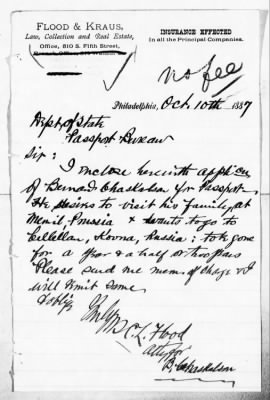 FLOOD & KRAUS,
Law, Collection and Real Estate,
Office, 810 S. Fifth Street,
INSURANCE EFFECTED
In all the Principal Companies.
no fee
Philadelphia, Oct 10th 1887
Dept of State
Passport Bureau
Sir:
I enclose herewith applicn
of Bernard Chaskelson for Passport
He desires to visit his family at
Memel, Prussia & wants to go to
Kovna, Russia: to be gone
for a year & a half or two years
Please send me mem. of charge & I
will remit same
Yours
C. L. Flood
Atty for
B. Chaskelson